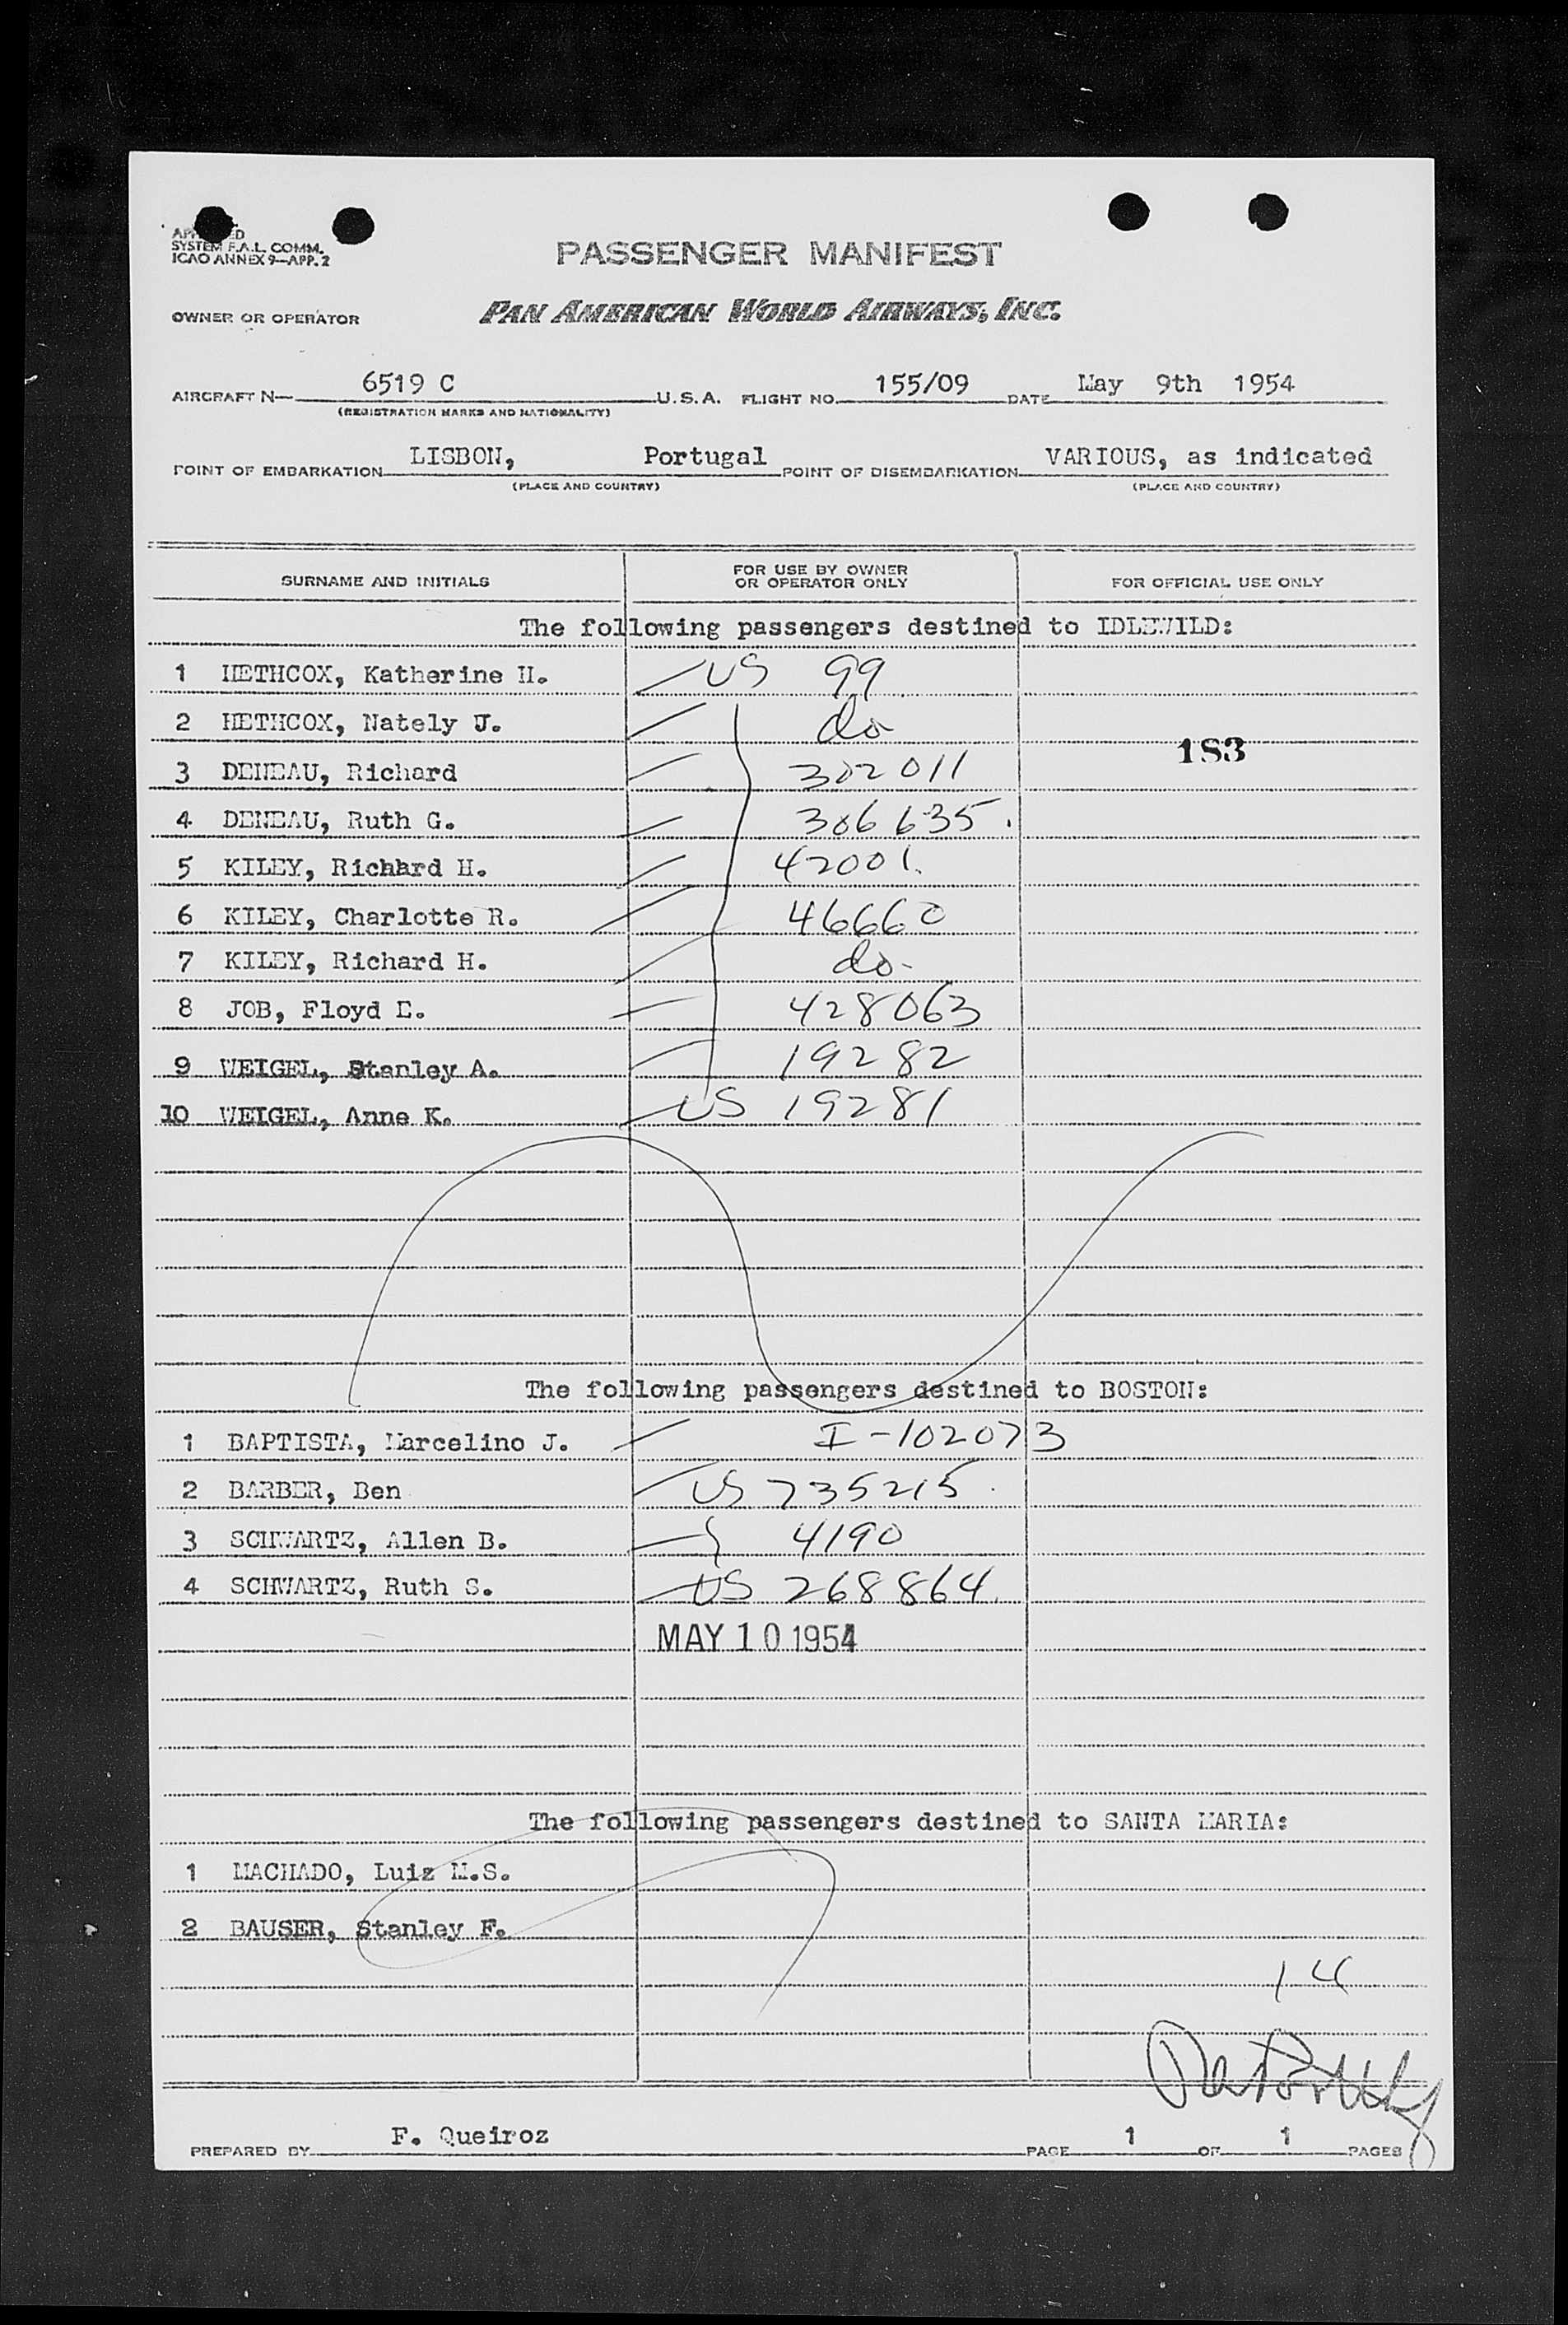 SYSTEM F.A.L. COMM.
ICAO ANNEX 9—APP. 2
PASSENGER MANIFEST
OWNER OR OPERATOR PAN AMERICAN WORLD AIRWAYS, INC.
AIRCRAFT N— 6519 C U.S.A. FLIGHT NO. 155/09 DATE May 9th 1954
(REGISTRATION MARKS AND NATIONALITY)
POINT OF EMBARKATION LISBON, Portugal POINT OF DISEMBARKATION VARIOUS, as indicated
(PLACE AND COUNTRY) (PLACE AND COUNTRY)
SURNAME AND INITIALS FOR USE BY OWNER OR OPERATOR ONLY FOR OFFICIAL USE ONLY
The following passengers destined to IDLEWILD:
1 HETHCOX, Katherine H. US 99
2 HETHCOX, Nately J. do
183
3 DENEAU, Richard 302011
4 DENEAU, Ruth G. 306635.
5 KILEY, Richard H. 42001.
6 KILEY, Charlotte R. 46660
7 KILEY, Richard H. do-
8 JOB, Floyd E. 428063
9 WEIGEL, Stanley A. 19282
10 WEIGEL, Anne K. US 19281
The following passengers destined to BOSTON:
1 BAPTISTA, Marcelino J. I-102073
2 BARBER, Ben US 735215.
3 SCHWARTZ, Allen B. 4190
4 SCHWARTZ, Ruth S. US 268864.
MAY 10 1954
The following passengers destined to SANTA MARIA:
1 MACHADO, Luiz M.S.
2 BAUSER, Stanley F.
14
PREPARED BY F. Queiroz PAGE 1 OF 1 PAGES